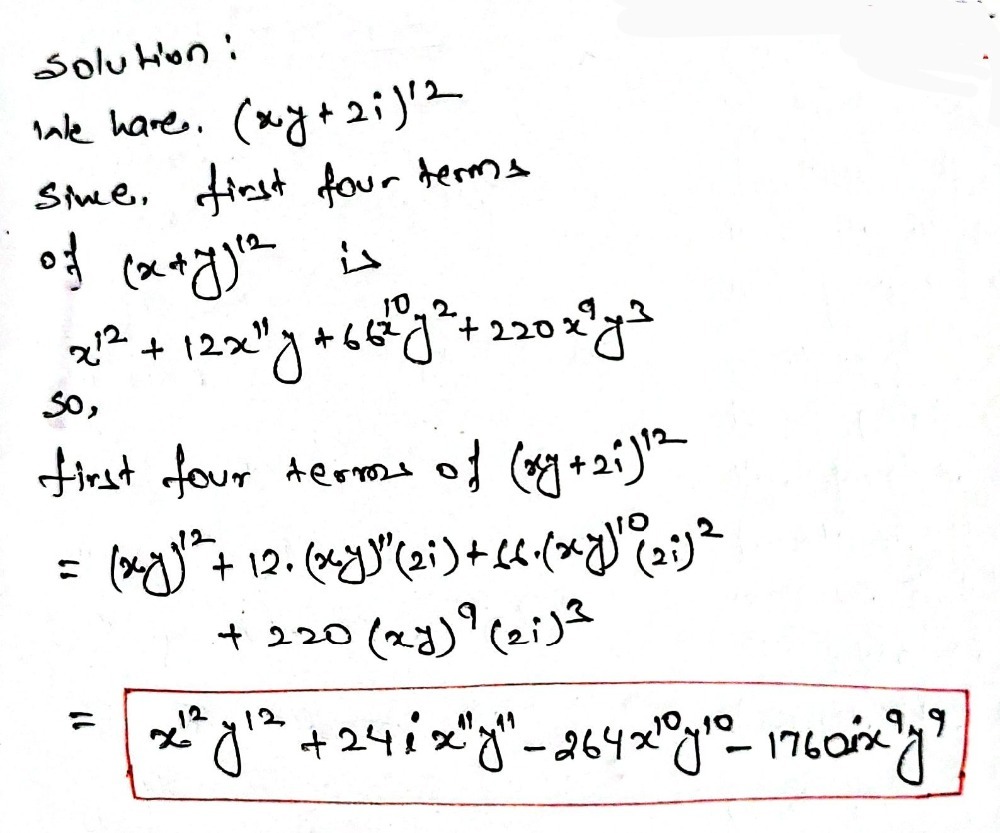 Solution:
We have. (xy + 2i)¹²
Since, first four terms
of (x+y)¹² is
x¹² + 12x¹¹y + 66x¹⁰y² + 220x⁹y³
so,
first four terms of (xy+2i)¹²
= (xy)¹² + 12·(xy)¹¹(2i) + 66·(xy)¹⁰(2i)²
+ 220 (xy)⁹ (2i)³
= x¹² y¹² + 24i x¹¹y¹¹ - 264x¹⁰y¹⁰ - 1760ix⁹y⁹